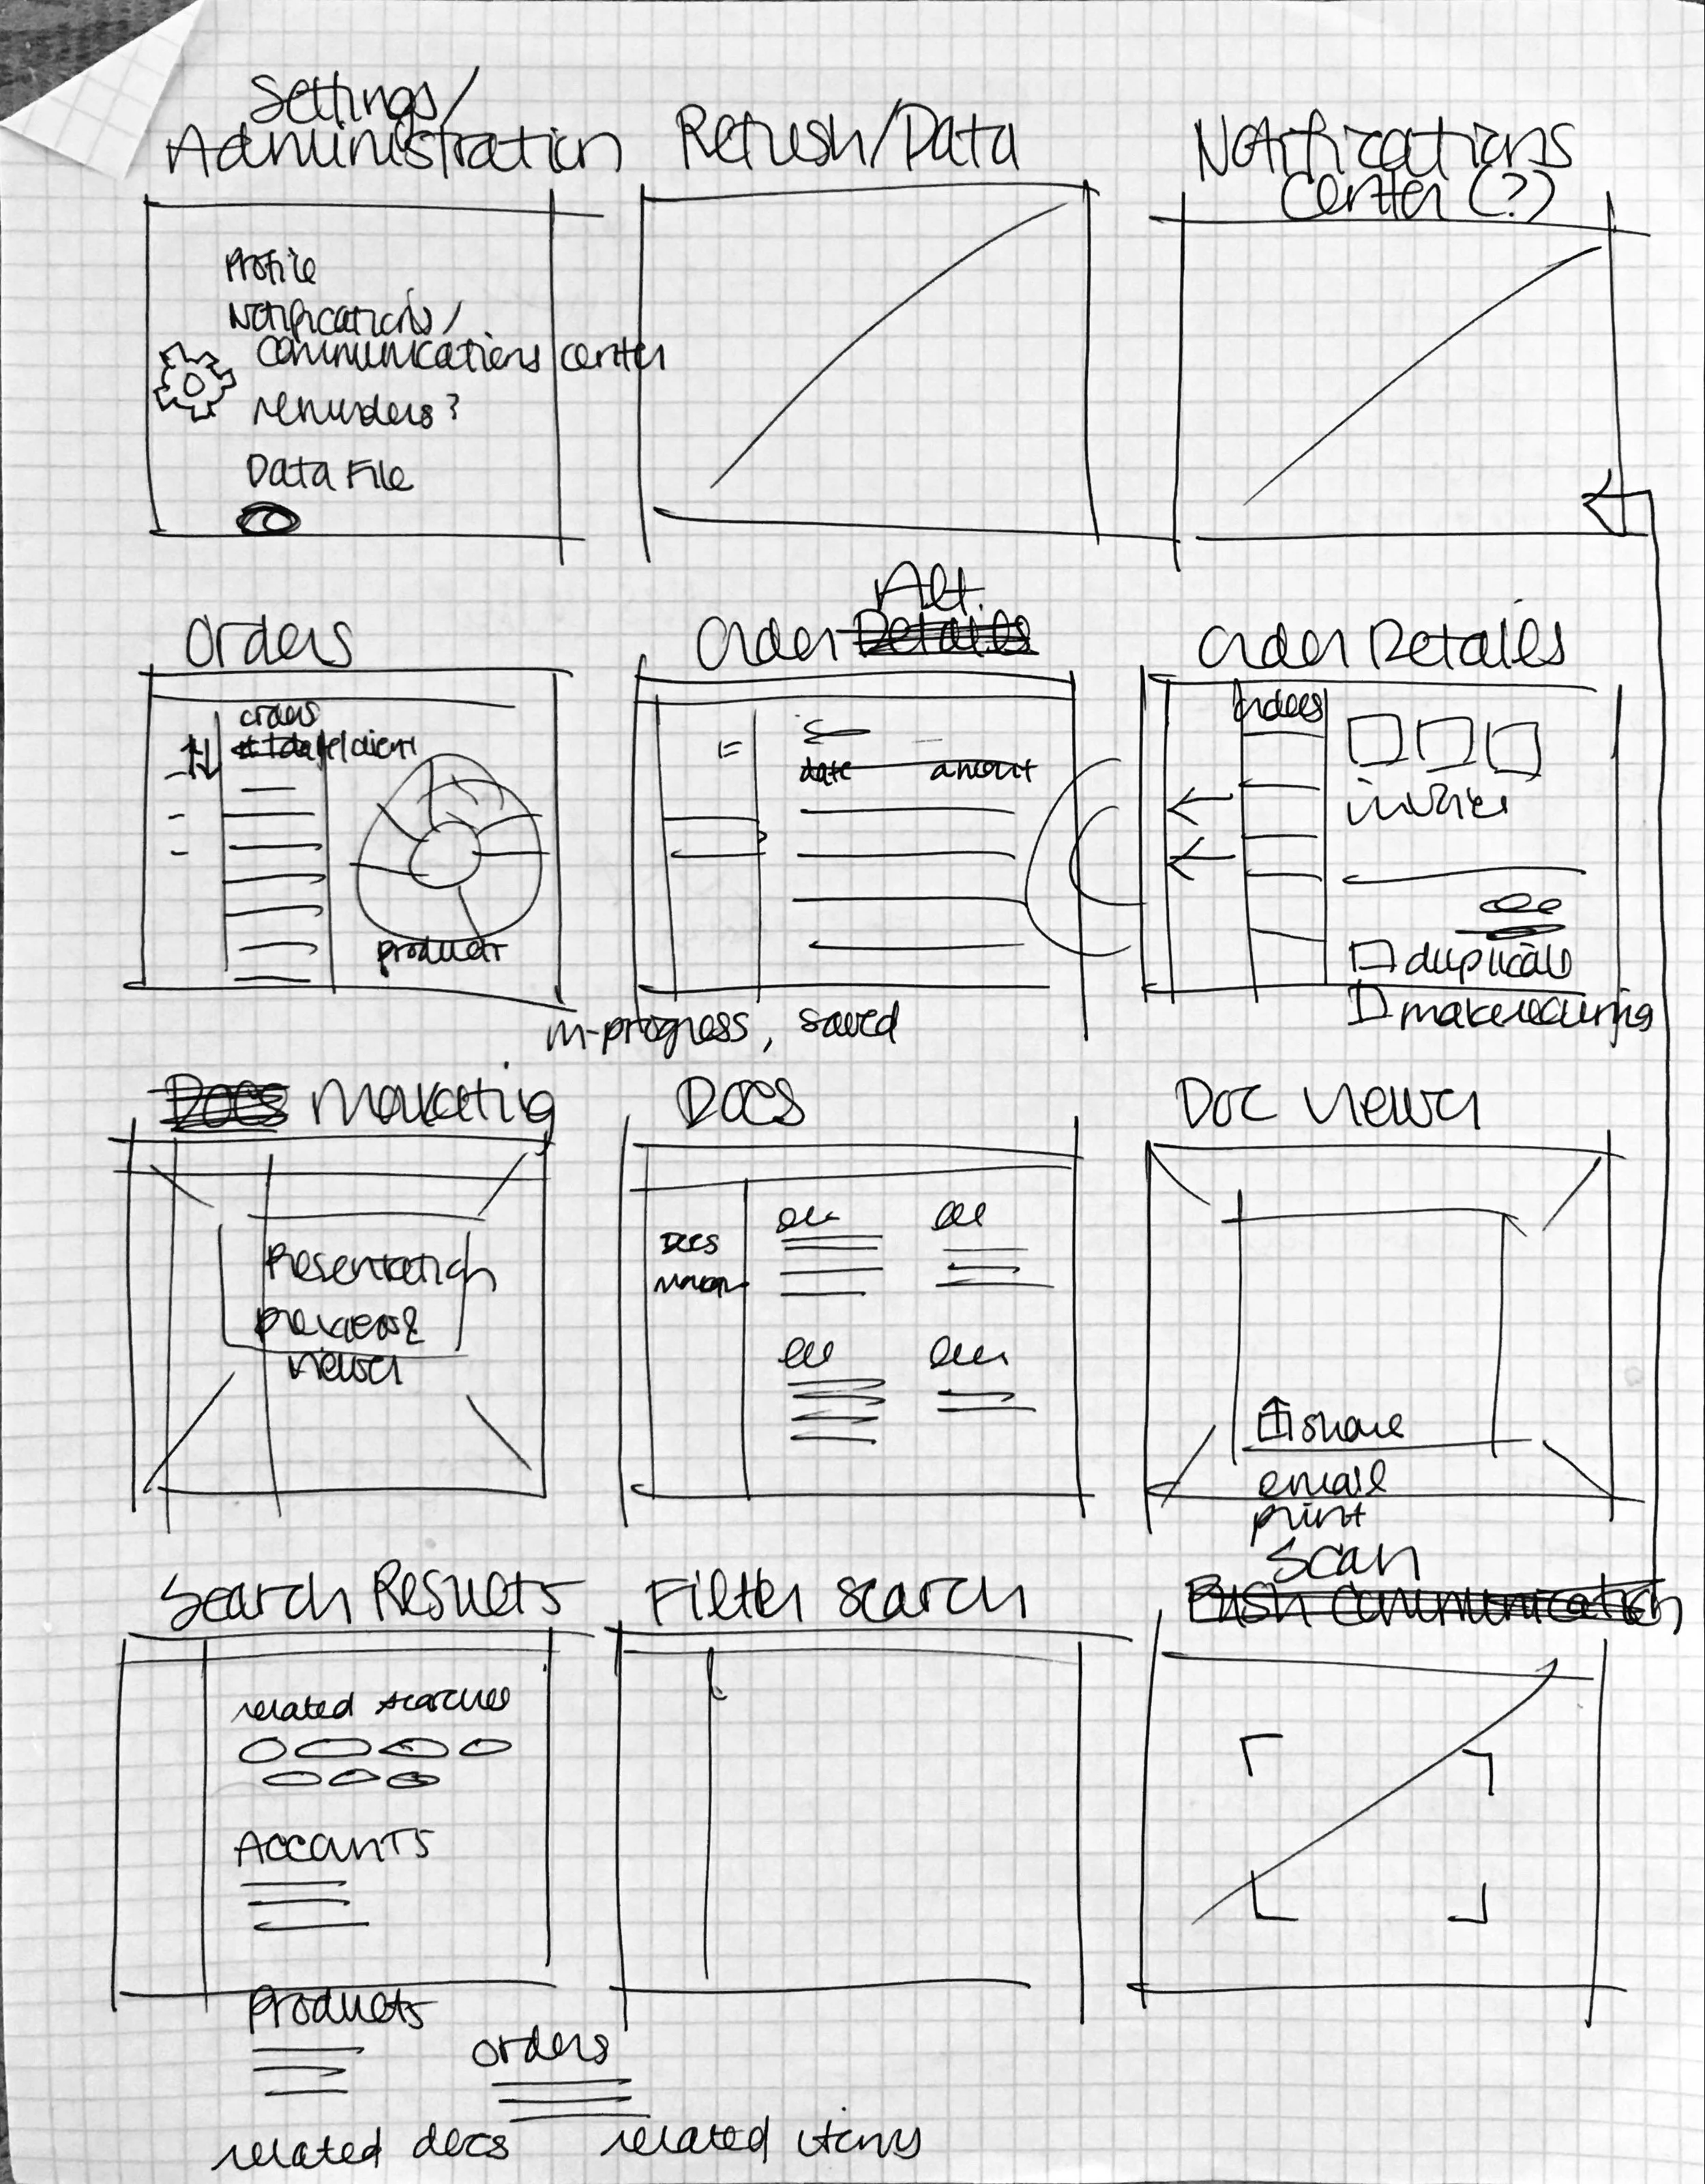 Settings/
Administration
Refresh/Data
Notifications
Center (?)
Profile
Notifications/
communications center
reminders?
Data File
Orders
Alt.
Order Details
Order Details
orders
date/client
product
date amount
in-progress, saved
orders
invoices
duplicate
make recurring
Docs Marketing
Docs
Doc Viewer
Presentation
preview &
viewer
Docs
share
email
print
Search Results
Filter search
Scan
Push Communication
related searches
Accounts
Products
orders
related docs
related items